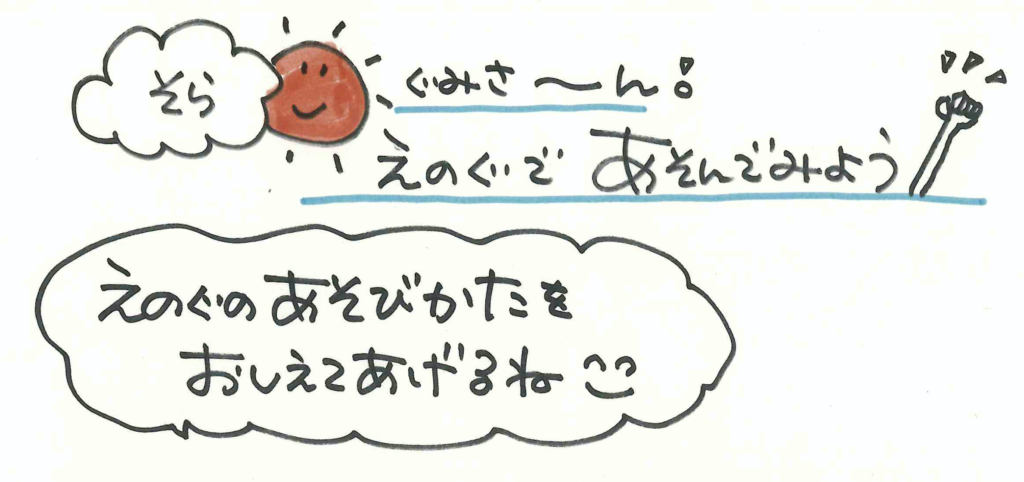 そら
ぐみさ〜ん!
えのぐで あそんでみよう
えのぐの あそびかたを
おしえてあげるね